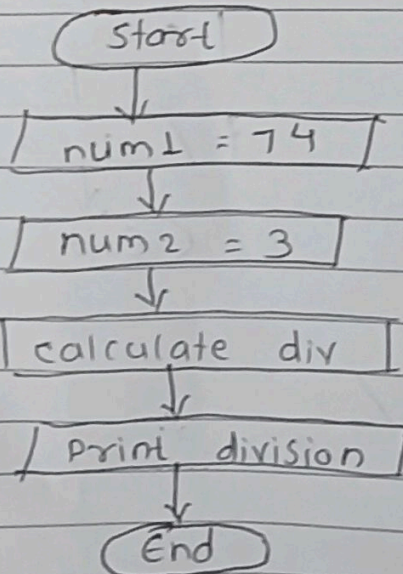 Start
num1 = 74
num2 = 3
calculate div
Print division
End